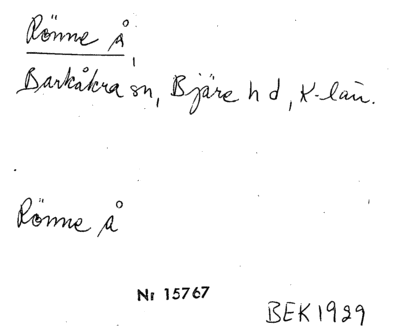 Rönne å,
Barkåkra sn, Bjäre hd, K-län.
Rönne å
Nr 15767
BEK 1929